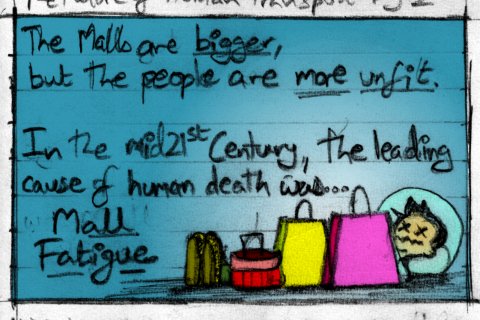 The Malls are bigger,
but the people are more unfit.
In the mid 21st Century, the leading
cause of human death was...
Mall
Fatigue